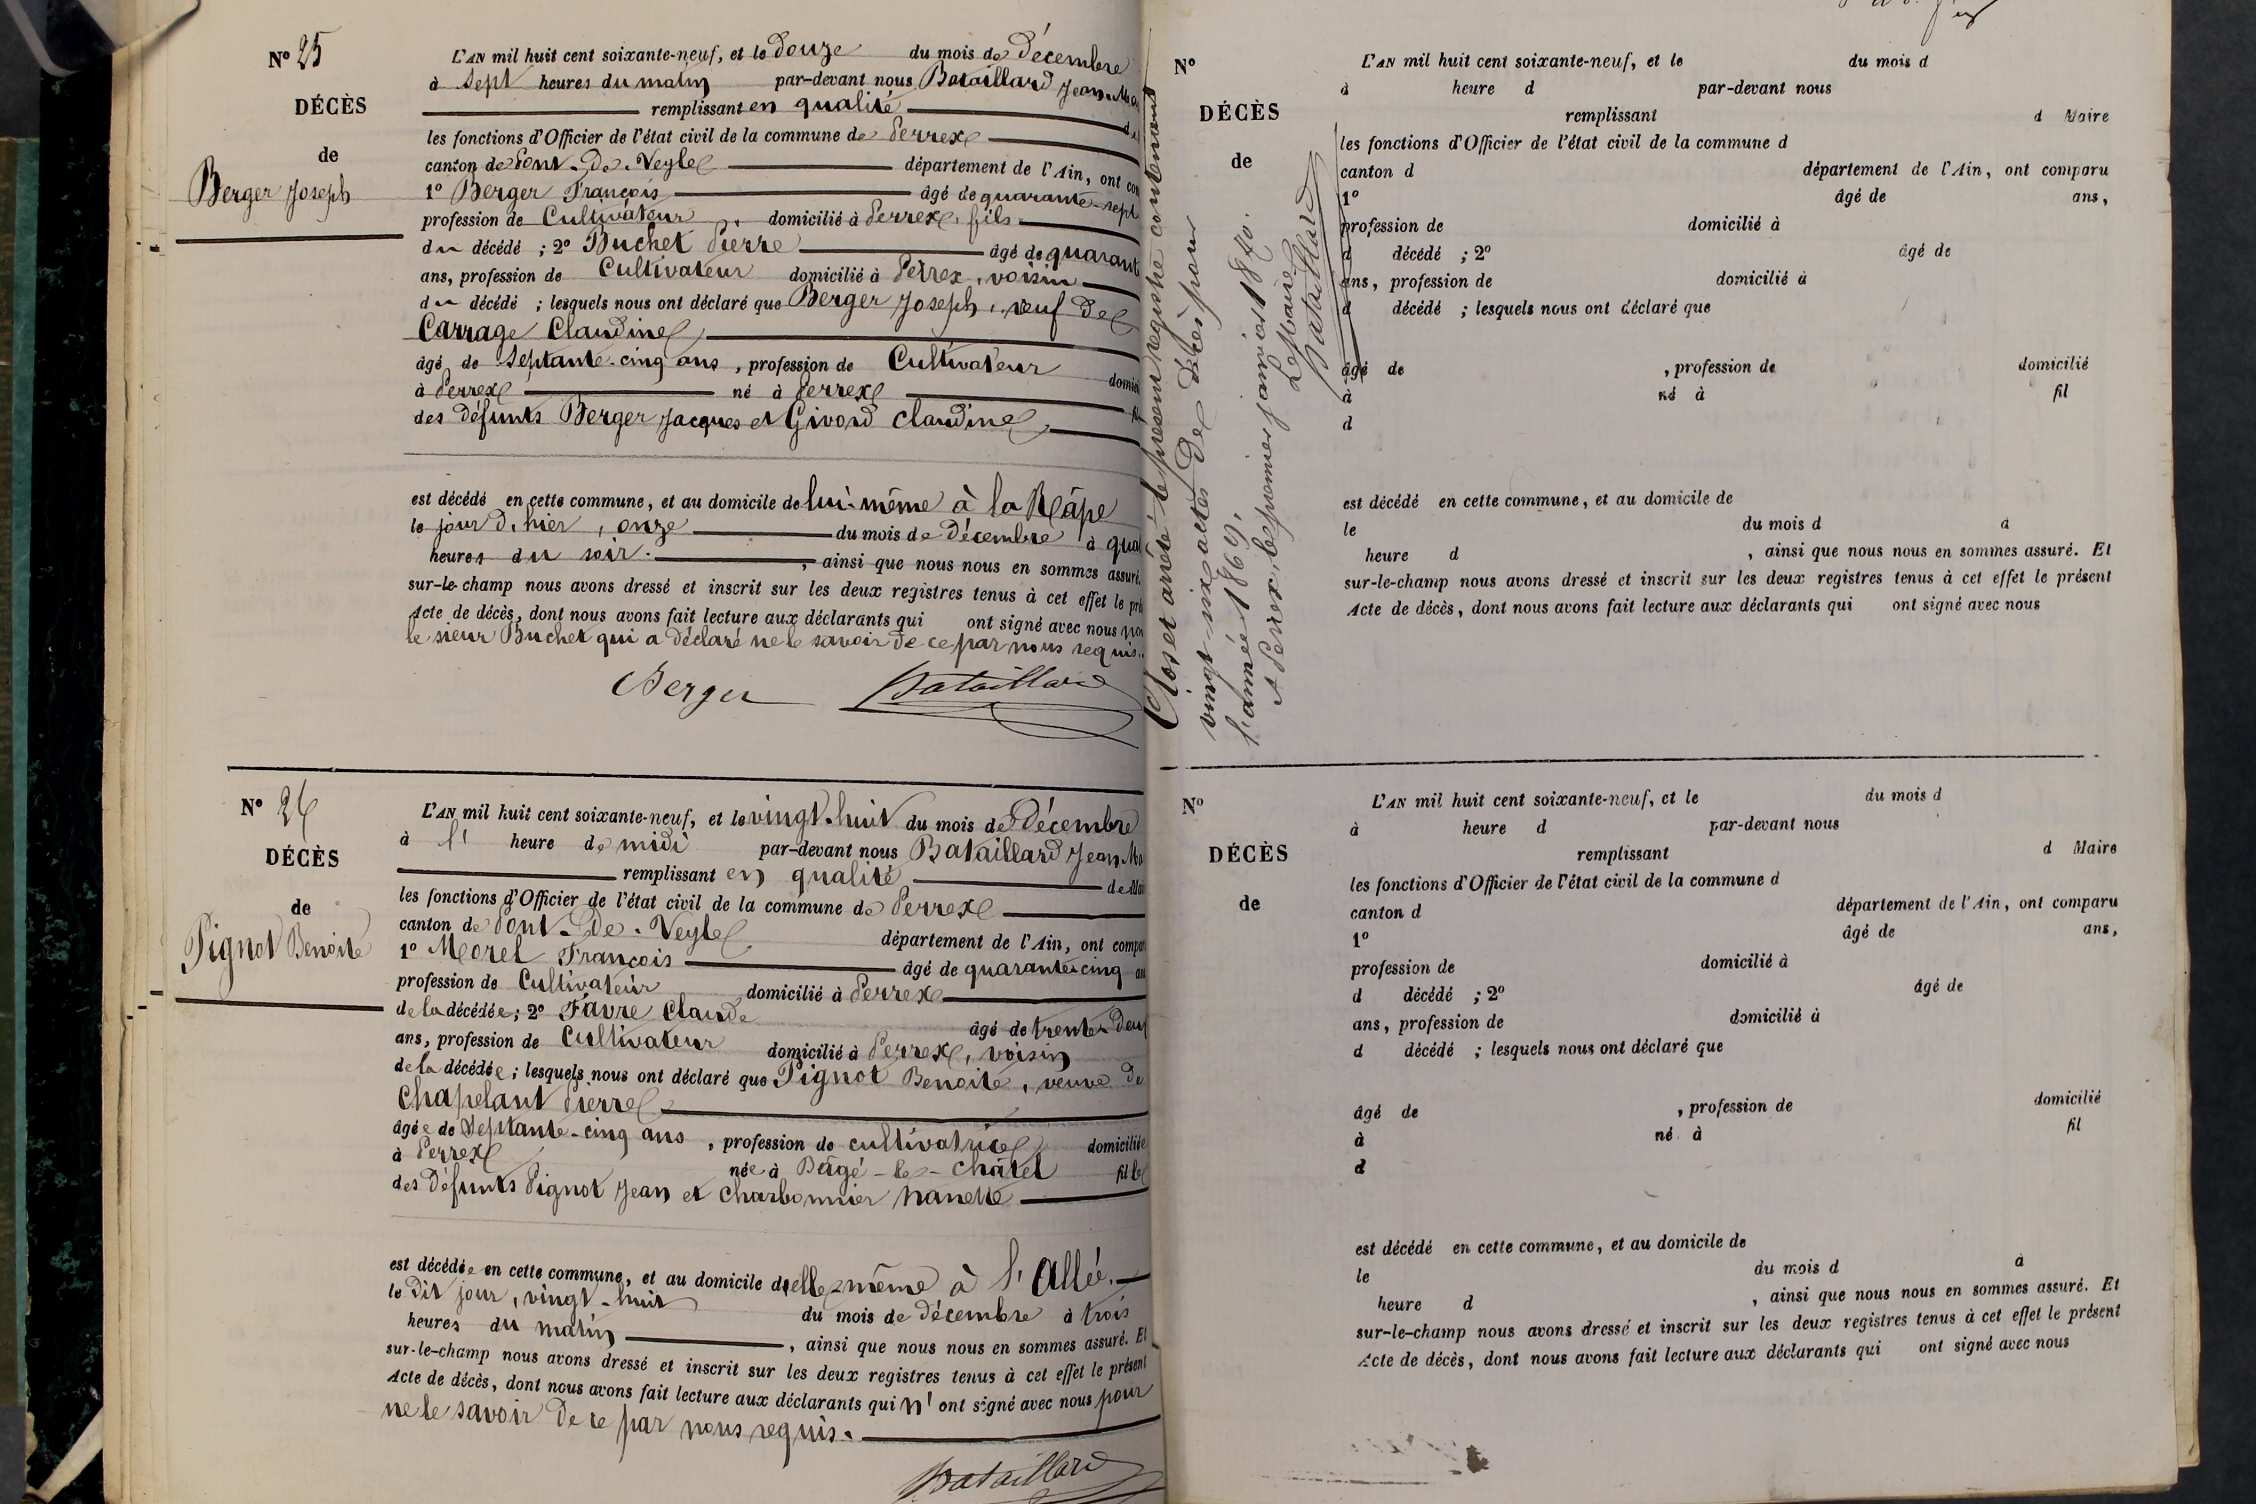 No 25
DÉCÈS
de
Berger Joseph
L'AN mil huit cent soixante-neuf, et le douze du mois de Décembre
à sept heures du matin par-devant nous Bataillard Jean-Ma
remplissant en qualité
les fonctions d'Officier de l'état civil de la commune de Perrex
canton de Pont-De-Veyle département de l'Ain, ont com
1º Berger François âgé de quarante-sept
profession de Cultivateur, domicilié à Perrex, fils
du décédé ; 2º Buchet Pierre âgé de quarant
ans, profession de Cultivateur domicilié à Perrex, voisin
du décédé ; lesquels nous ont déclaré que Berger Joseph, veuf De
Carrage Claudine
âgé de septante-cinq ans, profession de Cultivateur domici
à Perrex né à Perrex fi
des défunts Berger Jacques et Givord Claudine
est décédé en cette commune, et au domicile de lui-même à la Râpe
le jour D'hier, onze du mois de Décembre à qua
heures du soir. , ainsi que nous nous en sommes assuré.
sur-le-champ nous avons dressé et inscrit sur les deux registres tenus à cet effet le pré
Acte de décès, dont nous avons fait lecture aux déclarants qui ont signé avec nous non
le sieur Buchet qui a déclaré ne le savoir De ce par nous requis.
Berger Bataillard
No 26
DÉCÈS
de
Pignot Benoite
L'AN mil huit cent soixante-neuf, et le vingt-huit du mois de Décembre
à l' heure de midi par-devant nous Bataillard Jean Ma
remplissant en qualité de Mai
les fonctions d'Officier de l'état civil de la commune de Perrex
canton de Pont-De-Veyle département de l'Ain, ont compar
1º Morel François âgé de quarante-cinq an
profession de Cultivateur domicilié à Perrex
de la décédée ; 2º Favre Claude âgé de trente-Deux
ans, profession de Cultivateur domicilié à Perrex, voisin
de la décédée ; lesquels nous ont déclaré que Pignot Benoite, veuve De
Chapelant Pierre
âgée de Septante-cinq ans, profession de cultivatrice domiciliée
à Perrex née à Bâgé-le-Châtel fille
des Défunts Pignot Jean et Charbonnier Nanette
est décédée en cette commune, et au domicile d'elle-même à l'Allée.
le Dit jour, vingt-huit du mois de décembre à trois
heures du matin , ainsi que nous nous en sommes assuré. Et
sur-le-champ nous avons dressé et inscrit sur les deux registres tenus à cet effet le présent
Acte de décès, dont nous avons fait lecture aux déclarants qui n'ont signé avec nous pour
ne le savoir De ce par nous requis.
Bataillard
Clos et arrêté le présent registre contenant
vingt-six actes De Décès pour
l'année 1869.
A Perrex, le premier janvier 1870.
Le Maire
Bataillard
No
DÉCÈS
de
L'AN mil huit cent soixante-neuf, et le du mois d
à heure d par-devant nous
remplissant d Maire
les fonctions d'Officier de l'état civil de la commune d
canton d département de l'Ain, ont comparu
1º âgé de ans,
profession de domicilié à
d décédé ; 2º âgé de
ans, profession de domicilié à
d décédé ; lesquels nous ont déclaré que
âgé de , profession de domicilié
à né à fil
d
est décédé en cette commune, et au domicile de
le du mois d à
heure d , ainsi que nous nous en sommes assuré. Et
sur-le-champ nous avons dressé et inscrit sur les deux registres tenus à cet effet le présent
Acte de décès, dont nous avons fait lecture aux déclarants qui ont signé avec nous
No
DÉCÈS
de
L'AN mil huit cent soixante-neuf, et le du mois d
à heure d par-devant nous
remplissant d Maire
les fonctions d'Officier de l'état civil de la commune d
canton d département de l'Ain, ont comparu
1º âgé de ans,
profession de domicilié à
d décédé ; 2º âgé de
ans, profession de domicilié à
d décédé ; lesquels nous ont déclaré que
âgé de , profession de domicilié
à né à fil
d
est décédé en cette commune, et au domicile de
le du mois d à
heure d , ainsi que nous nous en sommes assuré. Et
sur-le-champ nous avons dressé et inscrit sur les deux registres tenus à cet effet le présent
Acte de décès, dont nous avons fait lecture aux déclarants qui ont signé avec nous